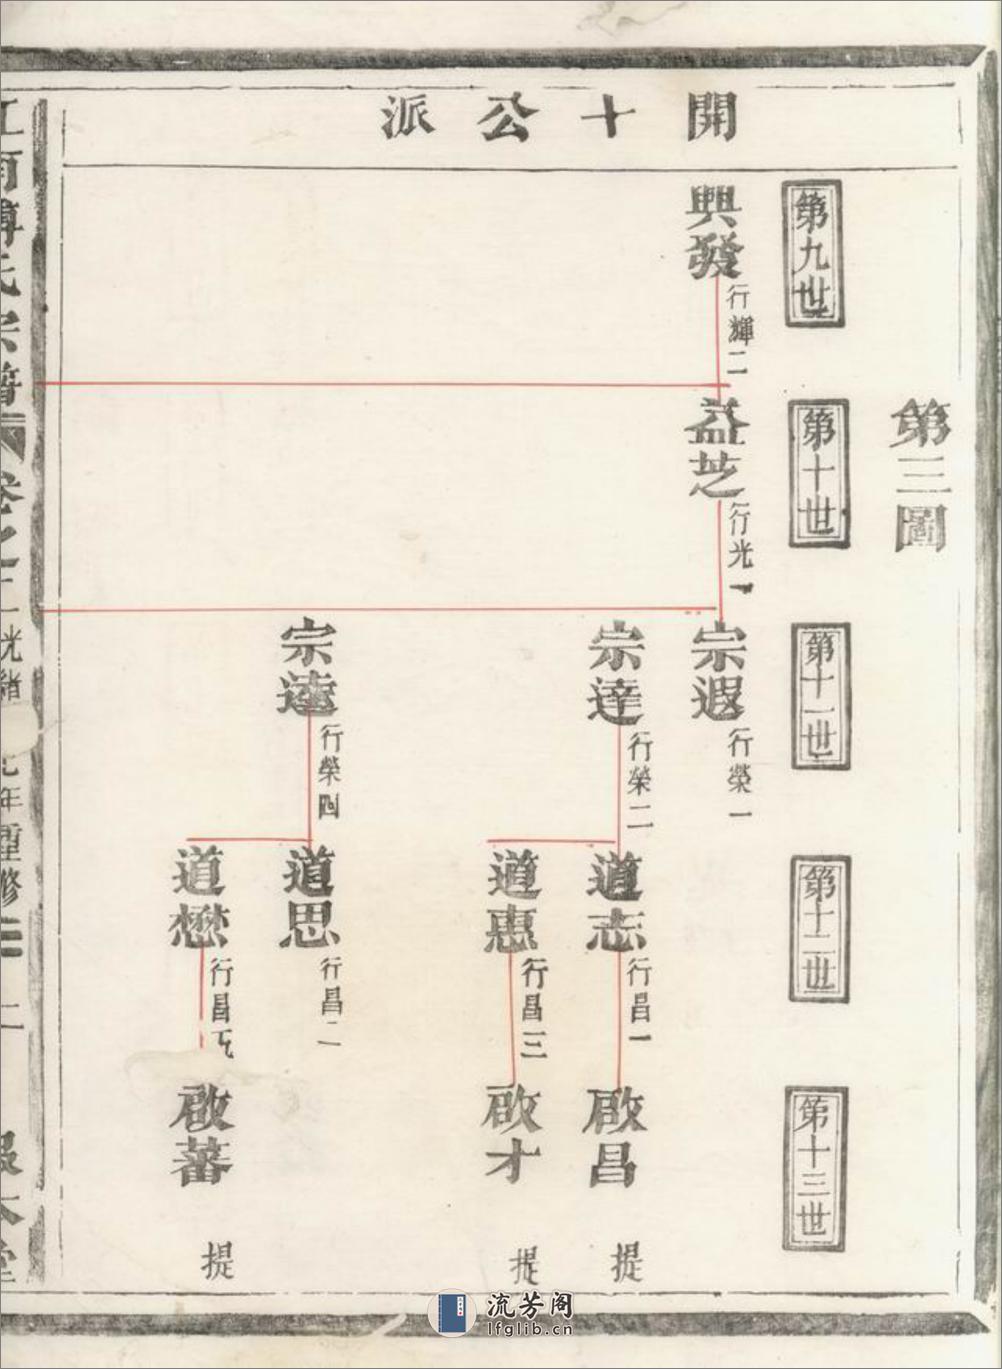 開十公派
第三圖
第九世
第十世
第十一世
第十二世
第十三世
興發
行輝二
益芝
行光一
宗遐
行榮一
宗達
行榮二
道志
行昌一
啟昌
提
道惠
行昌三
啟才
提
宗逵
行榮四
道思
行昌二
道懋
行昌五
啟蕃
提
江南傅氏宗譜
卷之二
光緒
七年重修
二
報本堂
流芳阁
lfglib.cn